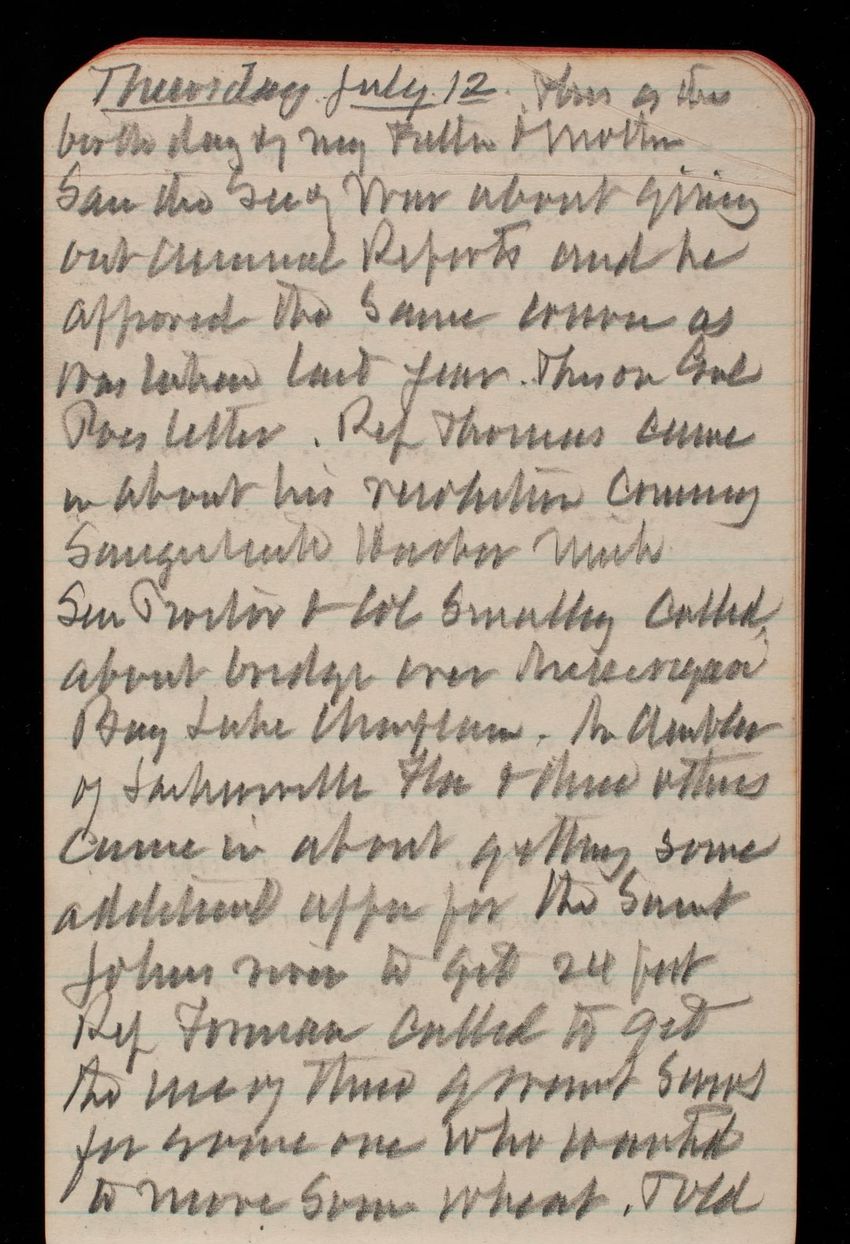 Thursday July 12. This is the
birth day of my Father & Mother
Saw the Secy War about giving
out annual Reports and he
approved the Same course as
was taken last year. Gen
letter. Rep Thomas came
in about his resolution Concerning
Saugatuck Harbor Mich
Sen Proctor & Col Smalley Called
about bridge over Missisquoi
Bay Lake Champlain. Mr Ambler
of Jacksonville Fla & three others
Came in about getting some
additional appn for the Saint
Johns river to get 24 feet
Rep Forman called to get
the use of three Scows
for some one who wanted
to move Some wheat. Told